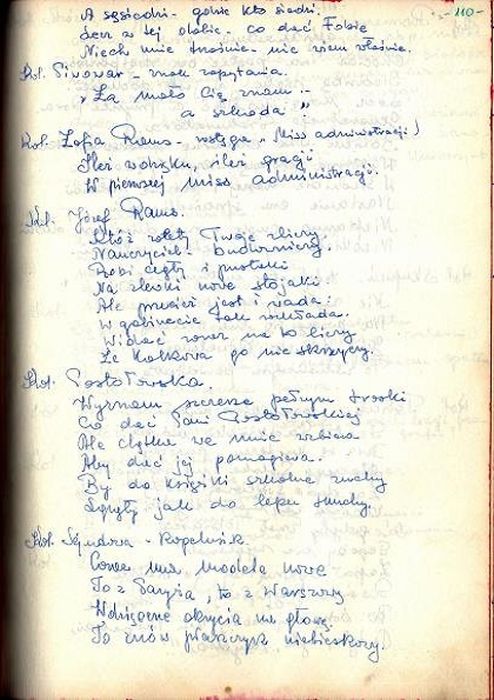 -110-
A sąsiadni - gdzie kto siedzi.
Lecz w tej dobie - co dać Tobie
Niech mnie trośnie - nie wiem właśnie.
Kol. Piwowar - znak zapytania.
"Za mało Cię znam -
a szkoda"
Kol. Zofia Rams - wstęga "Miss administracji)
Ileż wdzięku, ileż gracji
W pierwszej miss administracji.
Kol. Józef Rams.
Któż zalety Twoje zliczy.
Nauczyciel - budowniczy.
Robi cegły i pustaki
Na zlewki nowe stojaki
Ale przecież jest i wada:
W gabinecie tak układa.
Widać zaraz na to liczy
Że go nie skrzyczy.
Kol. Postołowska.
Wyznam szczerze pełnym troski
Co dać Pani Postołowskiej
Ale chętka we mnie wzbiera
Aby dać jej pomagiera.
By do książki szkolne zuchy
Lgnęły jak do lepu muchy.
Kol. - Kapelusik.
Coraz ma modele nowe
To z Paryża, to z Warszawy
Wdzięczne okrycia na głowę
To znów płaszczyk niebieskawy.